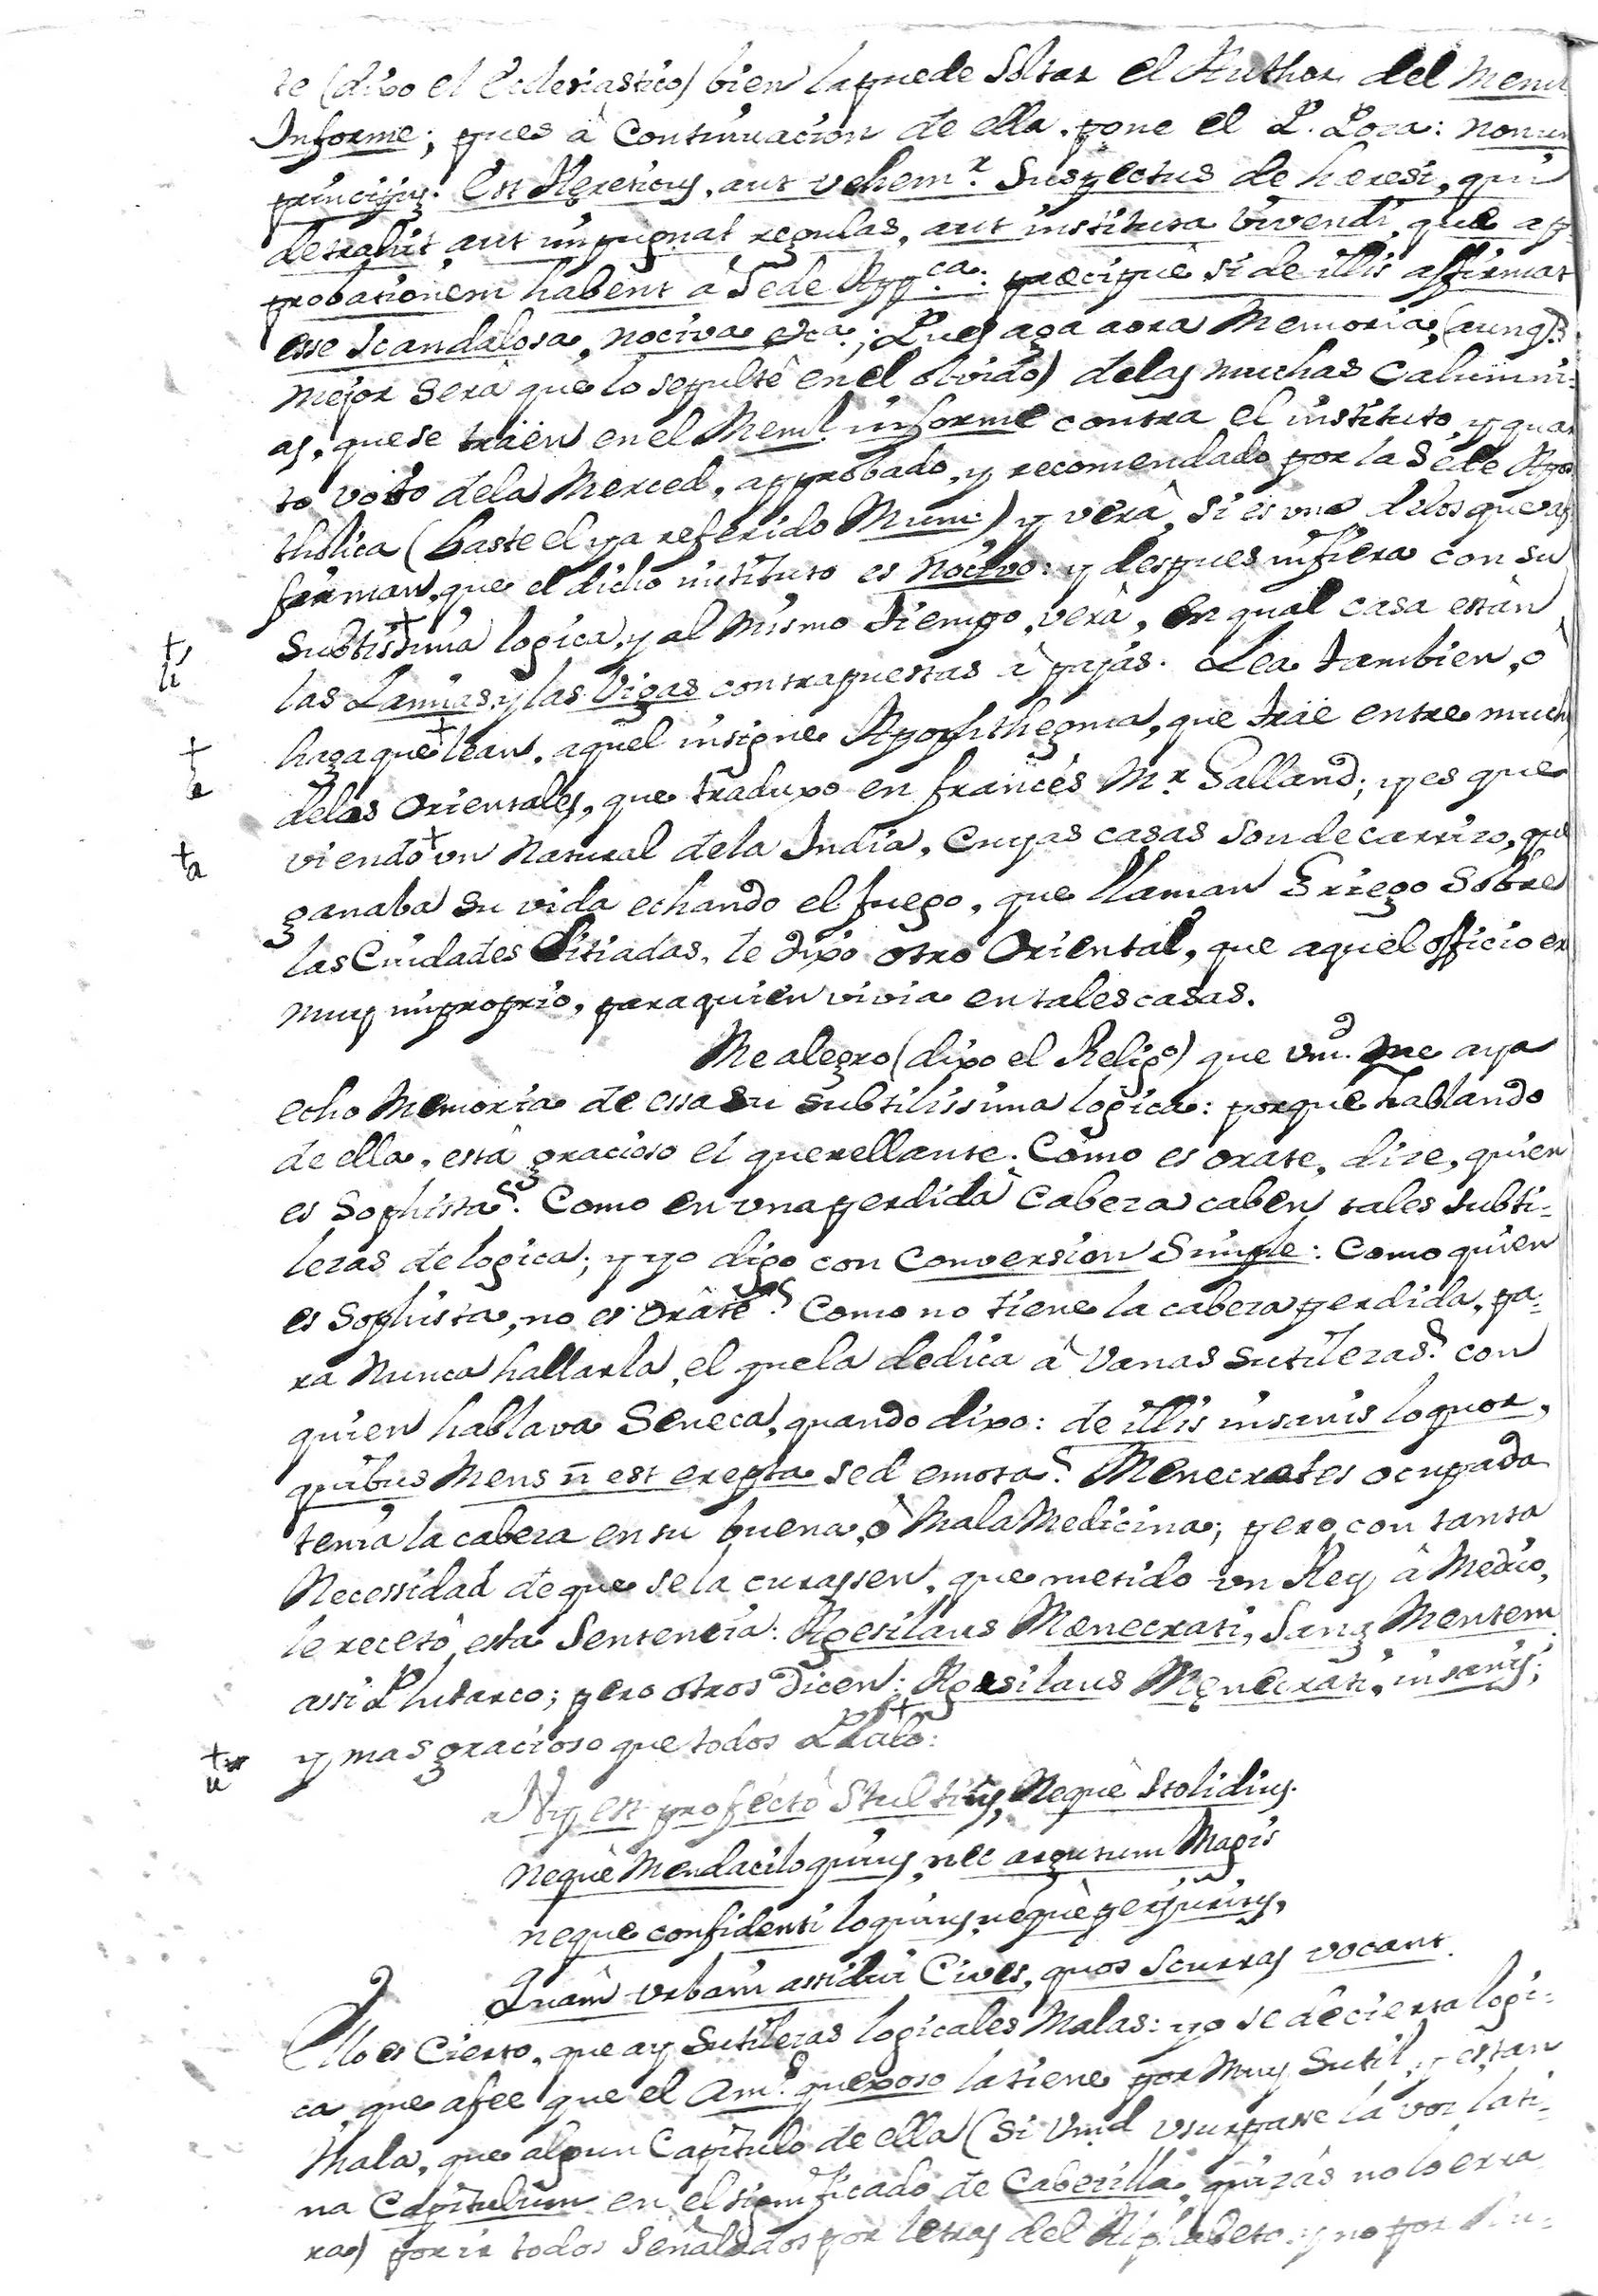 te (dixo el Ecclesiastico) bien la puede soltar el Author del Meml
Informe; pues à continuacion de ella pone el P. Loza: non
principijs: Est Hereticus, aut vehemr. suspectus de heresi, qui
detrahit aut impugnat regulas, aut instituta vivendi, que ap
probationem habent à Sede Appca. precipuè si de illis affirmat
esse scandalosa, nociva etca.; Pues aga aora Memoria, (aunq
mejor serà que lo sepultè en el olvido) delas muchas calumni:
as, que se traen en el Meml. informe contra el instituto, y quar
to voto dela Merced, approbado, y recomendado por la Sede Apos
tholica (baste el ya referido Nunc) y verà, si es uno delos que af
firman, que el dicho instituto es nocivo: y despues infiera con su
subtissima logica, y al mismo tiempo, verà, en qual casa estàn
las Lamias, y las Vigas contrapuestas à pajas. Lea tambien, ò
haga que lean, aquel insigne Apophthegma, que trae entre much
delos Orientales, que traduxo en francès Mr. Galland; y es que
viendo un Natural dela India, cuyas casas son de carrizo, que
ganaba su vida echando el fuego, que llaman Griego sobre
las Ciudades sitiadas, le dixo otro Oriental, que aquel officio er
muy improprio, para quien vivia en tales casas.
Me alegro (dixo el Religo) que vm. me aya
echo Memoria de essa su subtilissima logica: porque hablando
de ella, està gracioso el querellante. Como es orate, dize, quien
es Sophista? Como en una perdida cabeza caben tales subti-
lezas de logica; y yo digo con conversion simple: Como quien
es Sophista, no es Orate? Como no tiene la cabeza perdida, pa-
ra nunca hallarla, el que la dedica à vanas sutilezas? con
quien hablava Seneca, quando dixo: de illis insanis loquor,
quibus Mens ñ est erepta sed emota? Menecrates ocupada
tenia la cabeza en su buena, ò Mala Medicina; pero con tanta
Necessidad de que se la curassen, que metido un Rey à Medico,
le recetò esta Sentencia: Agesilaus Menecrati, Sanã Mentem
assi Plutarco; pero otros dicen: Agesilaus Menecrati, insanis;
y mas gracioso que todos Plauto:
Nij est profectò stultius, Neque stolidius.
Neque Mendaciloquius, nec argutum Magis
neque confidenti loquius, neque perjurius,
Quàm urbani assidui Cives, quos scurras vocant.
Ello es Cierto, que ay sutilezas logicales Malas: yo sè de cierta logi:
ca, que afee que el Amo. quexoso la tiene por muy sutil, y es tan
Mala, que algun Capitulo de ella (si Vmd usurpase la voz lati-
na Capitulum en el significado de Cabezilla, quizàs no lo erra
ra) por ir todos señalados por letras del Alphabeto: y no por